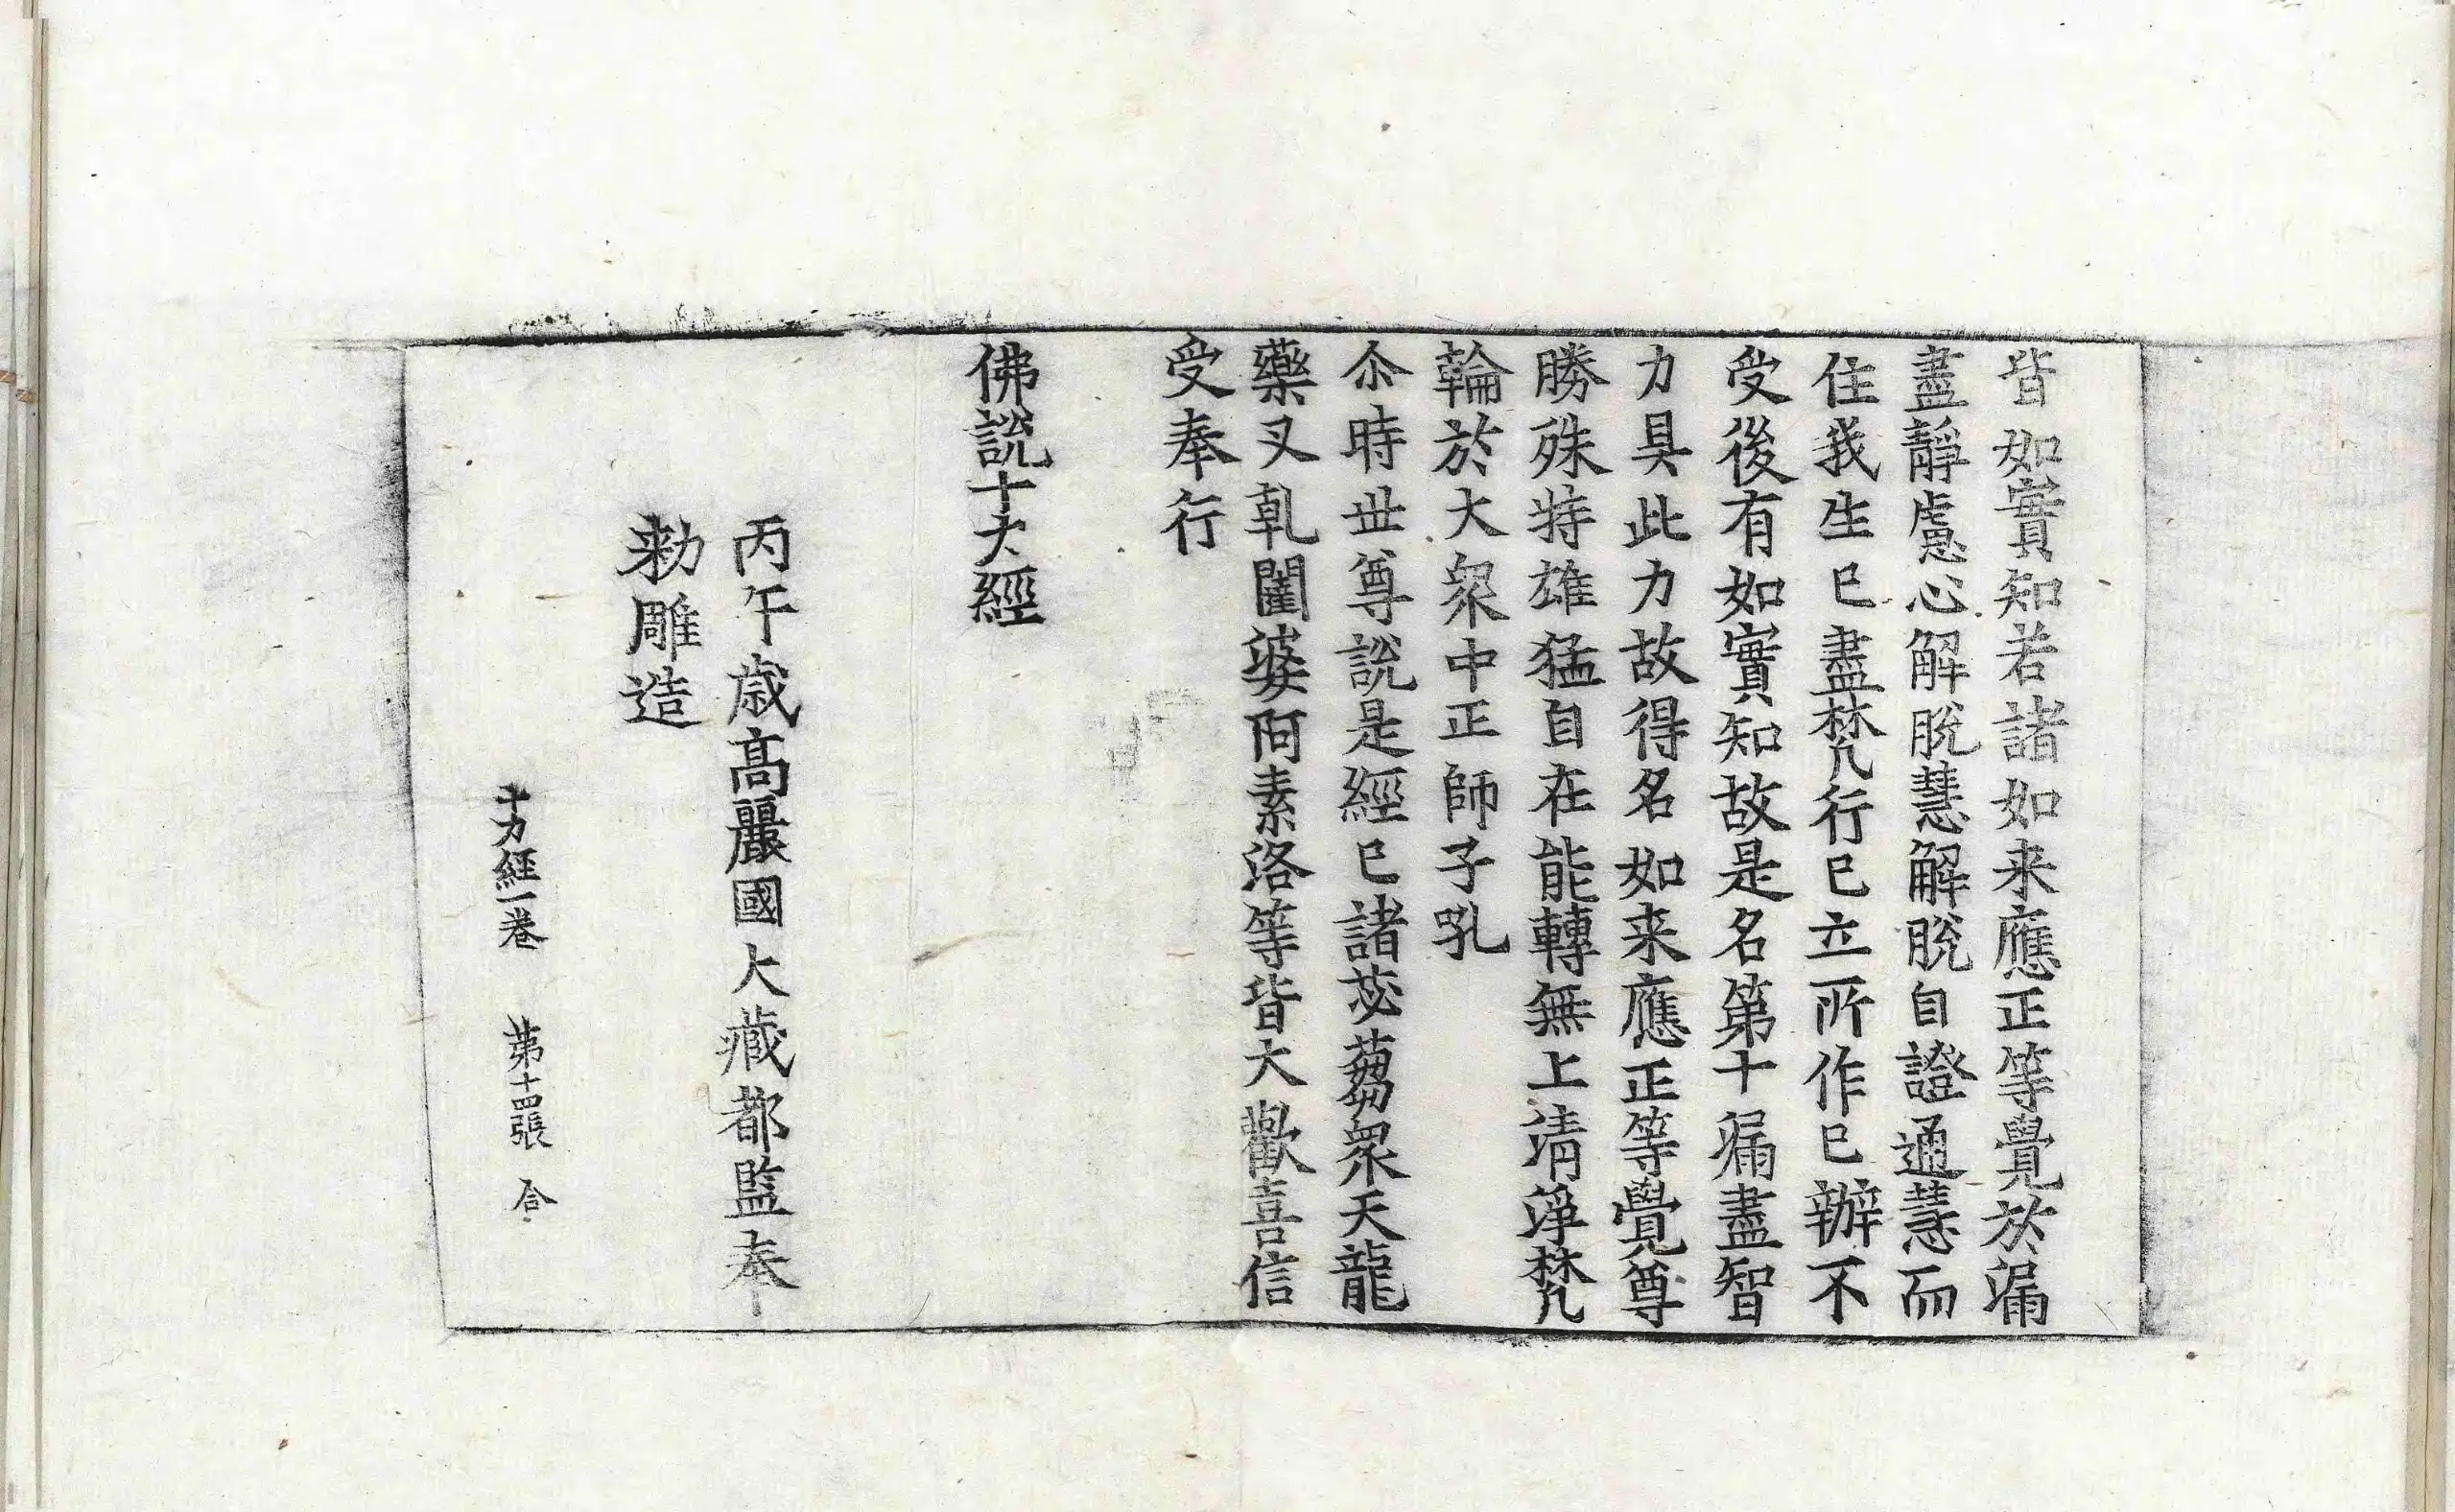 皆如實知若諸如来應正等覺於漏
盡靜慮心解脫慧解脫自證通慧而
住我生已盡梵行已立所作已辦不
受後有如實知故是名第十漏盡智
力具此力故得名如来應正等覺尊
勝殊特雄猛自在能轉無上清淨梵
輪於大衆中正師子吼
尒時世尊說是經已諸苾蒭衆天龍
藥叉乹闥婆阿素洛等皆大歡喜信
受奉行
佛說十大經
丙午歳高麗國大藏都監奉
勑雕造
十力經一卷 苐十四張 合